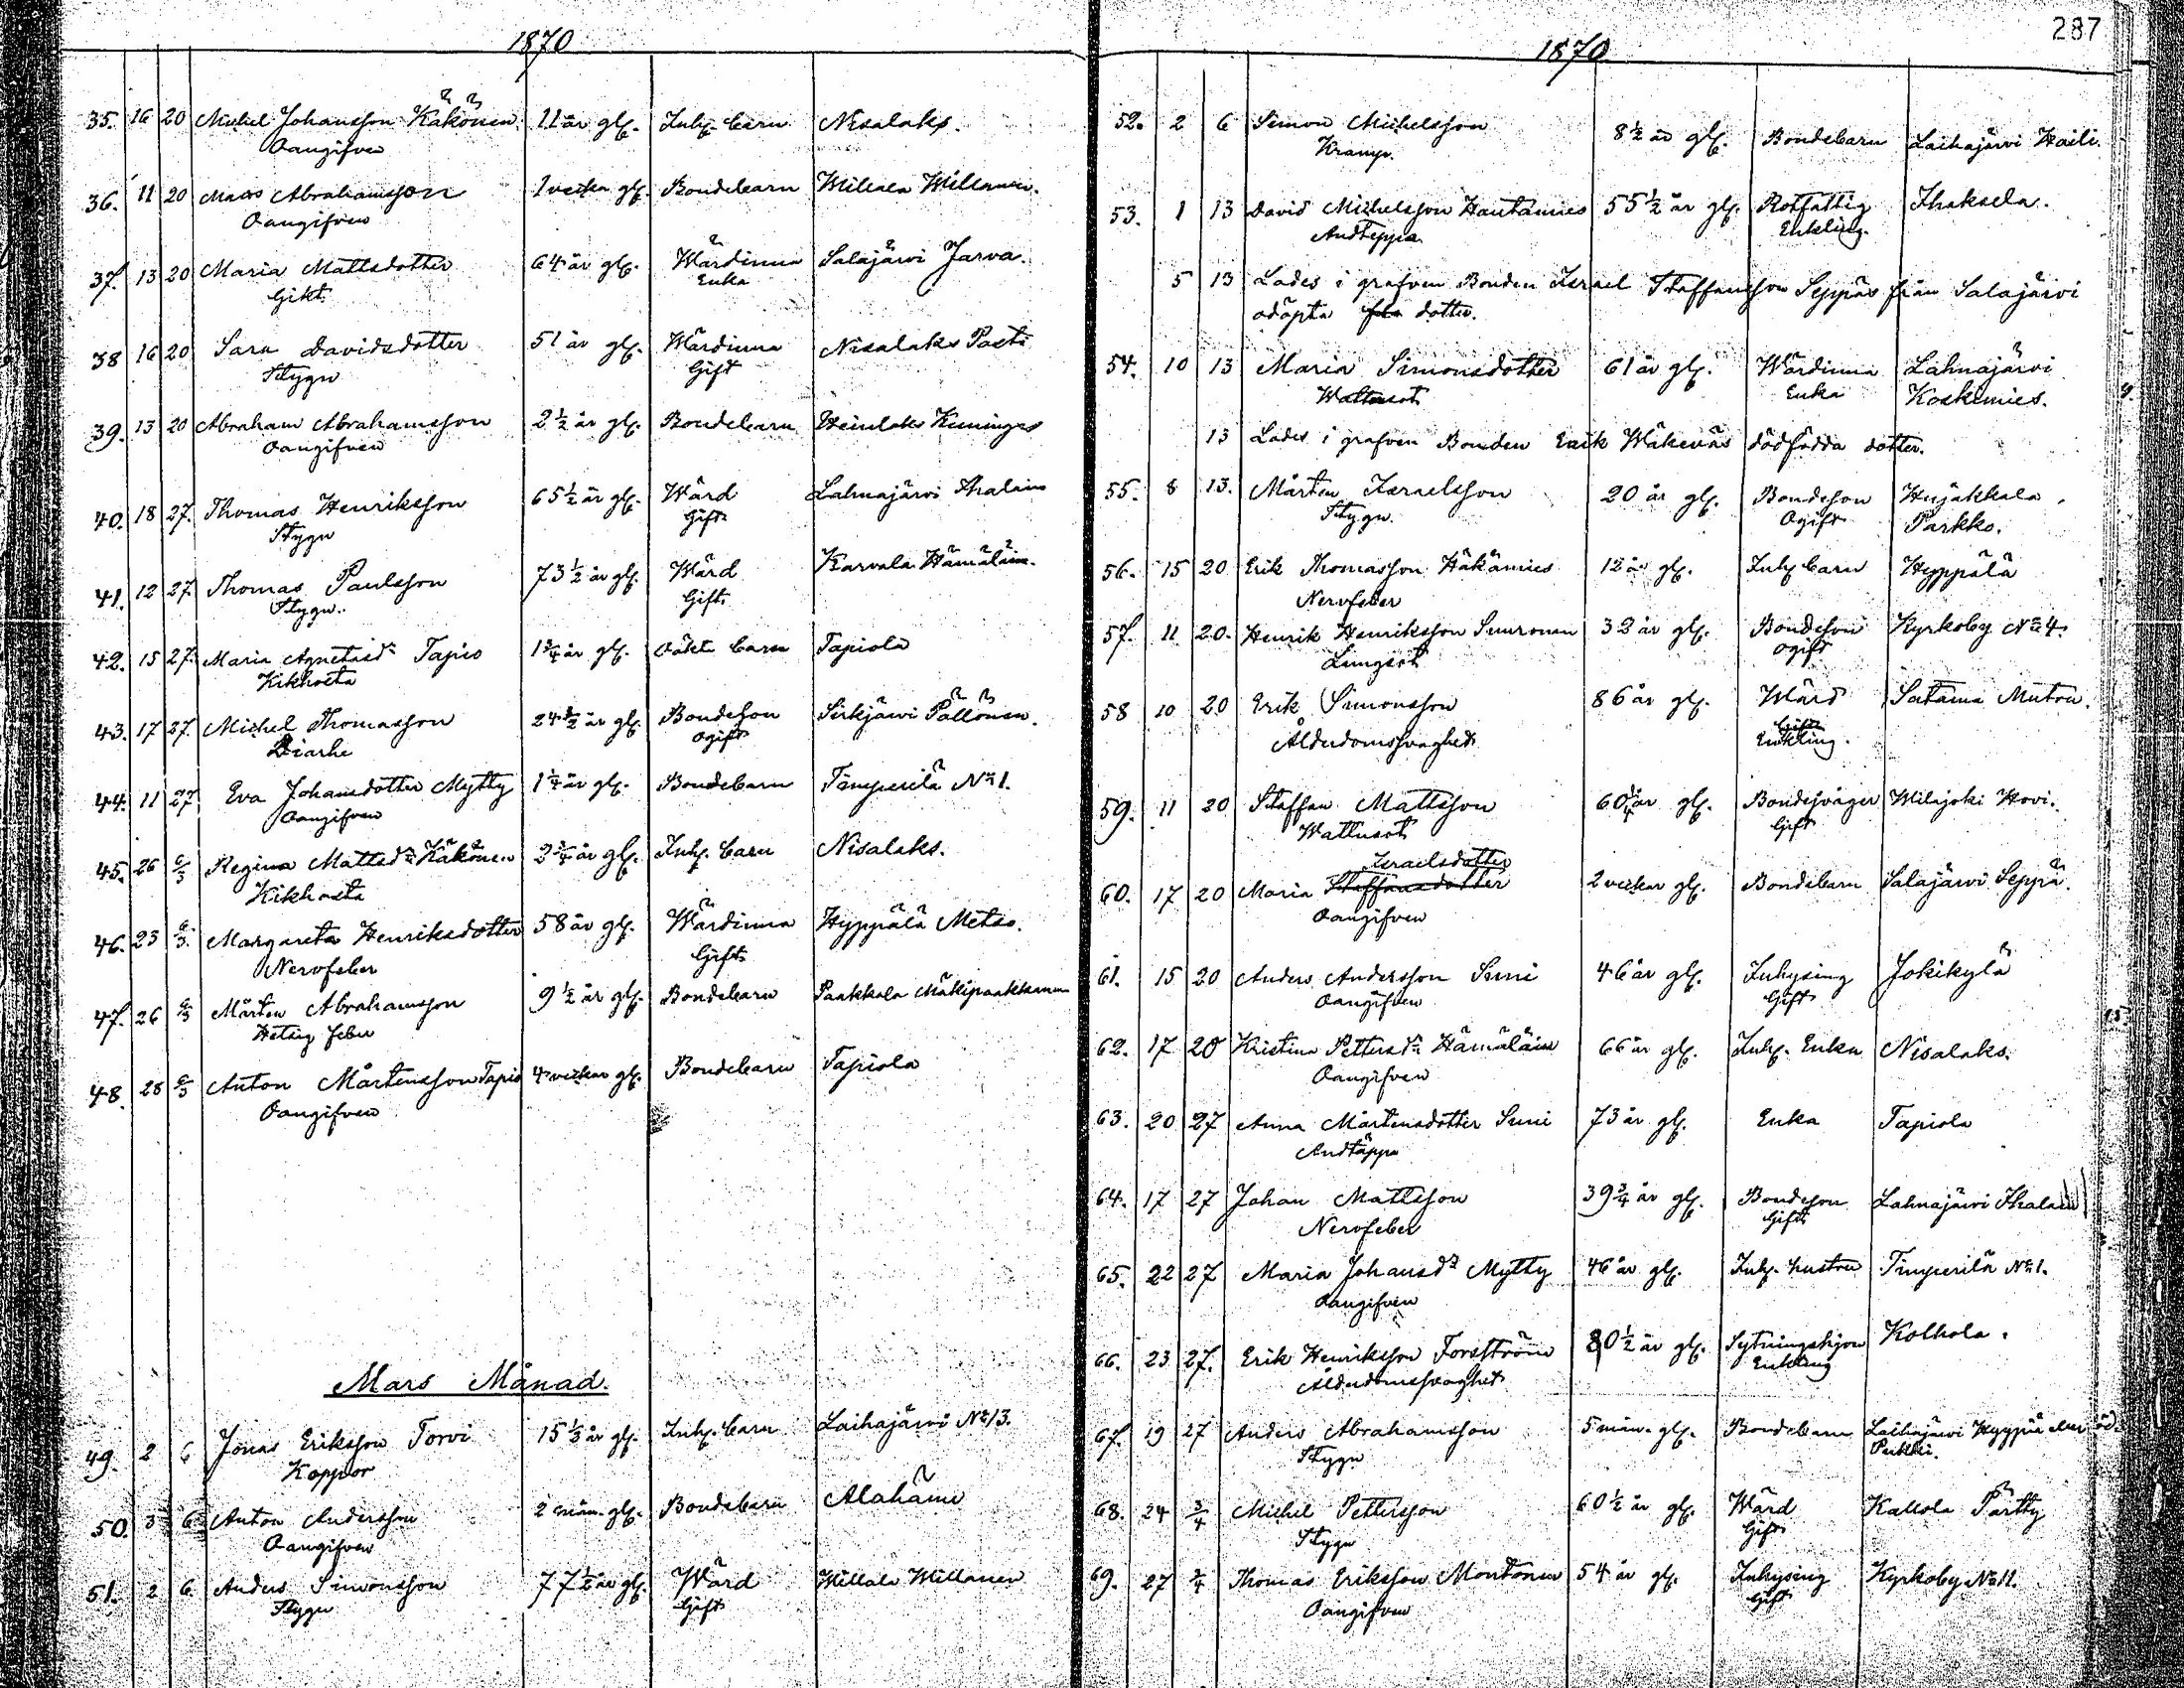 1870
35. 16 20 Michel Johansson Käkönen 11 år gl. Inh. barn Nisalaks.
Oangifven
36. 11 20 Matts Abrahamsson 1 vecka gl. Bondebarn Willala Willanen.
Oangifven
37. 13 20 Maria Mattsdotter 64 år gl. Wärdinna Salajärvi Jarva.
Gikt Enka
38 16 20 Sara Davidsdotter 51 år gl. Wärdinna Nisalaks Pasti
Stygn Gift
39. 13 20 Abraham Abrahamsson 2 1/2 år gl. Bondebarn Heinlaks Kuninges
Oangifven
40. 18 27. Thomas Henriksson 65 1/2 år gl. Wärd Lahnajärvi
Stygn Gift
41. 12 27 Thomas Paulsson 73 1/2 år gl. Wärd Karvala Hämäläin.
Stygn. Gift
42. 15 27. Maria Agnetasdr Tapio 1 3/4 år gl. Oäkta barn Tapiola
Kikhosta
43. 17 27. Michel Thomasson 24 1/2 år gl. Bondeson Sirkjärvi Pällönen.
Diarhe Ogift
44. 11 27 Eva Johansdotter Mytty 1 1/4 år gl. Bondebarn Timperilä No 1.
Oangifven
45. 26 6/3 Regina Mattsdr Käkönen 2 3/4 år gl. Inh. barn Nisalaks.
Kikhosta
46. 23 6/3 Margareta Henriksdotter 58 år gl. Wärdinna Hyppälä Metso.
Nervfeber Gift
47. 26 6/3 Mårten Abrahamsson 9 1/2 år gl. Bondebarn Paakkola Mäkipaakkanen
Hetsig feber
48. 28 6/3 Anton Mårtensson Tapio 4 veckor gl. Bondebarn Tapiola
Oangifven
Mars Månad.
49. 2 6 Jonas Eriksson Torvi 15 1/3 år gl. Inh. barn Laihajärvi No 13.
Koppor
50. 3 6 Anton Andersson 2 mån. gl. Bondebarn Alahäme
Oangifven
51. 2 6 Anders Simonsson 77 1/2 år gl. Wärd Willala Willanen
Stygn Gift
287
1870
52. 2 6 Simon Michelsson 8 1/2 år gl. Bondebarn Laihajärvi Haili.
Kramp.
53. 1 13 David Michelsson Hautamies 55 1/2 år gl. Rotfattig Ihaksela.
Andteppa. Enkling.
5 13 Lades i grafven Bonden Israel Staffansson Seppäs från Salajärvi
odöpta dotter.
54. 10 13 Maria Simonsdotter 61 år gl. Wärdinna Lahnajärvi
Wattusot Enka Koskimies.
13 Lades i grafven Bonden Erik Wäkeväs dödfödda dotter.
55. 8 13. Mårten Israelsson 20 år gl. Bondeson Hujakkala
Stygn. Ogift Parkko.
56. 15 20 Erik Thomasson Häkämies 12 år gl. Inh. barn Hyppälä
Nervfeber
57. 11 20. Henrik Henriksson Suuronen 32 år gl. Bondeson Kyrkoby No 4.
Lungsot ogift
58 10 20 Erik Simonsson 86 år gl. Wärd Satama Muton.
Ålderdomssvaghet Gift
Enkling.
59. 11 20 Staffan Mattsson 60 1/4 år gl. Bondesvåger Wilajoki Hovi.
Wattusot Gift
Israelsdotter
60. 17 20 Maria Staffansdotter 2 veckor gl. Bondebarn Salajärvi Seppä.
Oangifven
61. 15 20 Anders Andersson Suni 46 år gl. Inhysing Jokikylä
Oangifven Gift
62. 17 20 Kristina Pettersdr Hämäläin 66 år gl. Inh. Enka Nisalaks.
Oangifven
63. 20 27 Anna Mårtensdotter Suni 73 år gl. Enka Tapiola
Andtäppa
64. 17 27 Johan Mattsson 39 3/4 år gl. Bondeson Lahnajärvi
Nervfeber Gift
65. 22 27 Maria Johansdr Mytty 46 år gl. Inh. hustru Timperilä No 1.
Oangifven
66. 23 27. Erik Henriksson Forsström 80 1/2 år gl. Sytningshjon Kolhola.
Ålderdomssvaghet Enkling
67. 19 27 Anders Abrahamsson 5 mån. gl. Bondebarn Laihajärvi Hyypiä
Stygn
68. 24 3/4 Michel Pettersson 60 1/2 år gl. Wärd Kallola Pärtty
Stygn Gift
69. 27 3/4 Thomas Eriksson Montonen 54 år gl. Inhysing Kyrkoby No 11.
Oangifven Gift